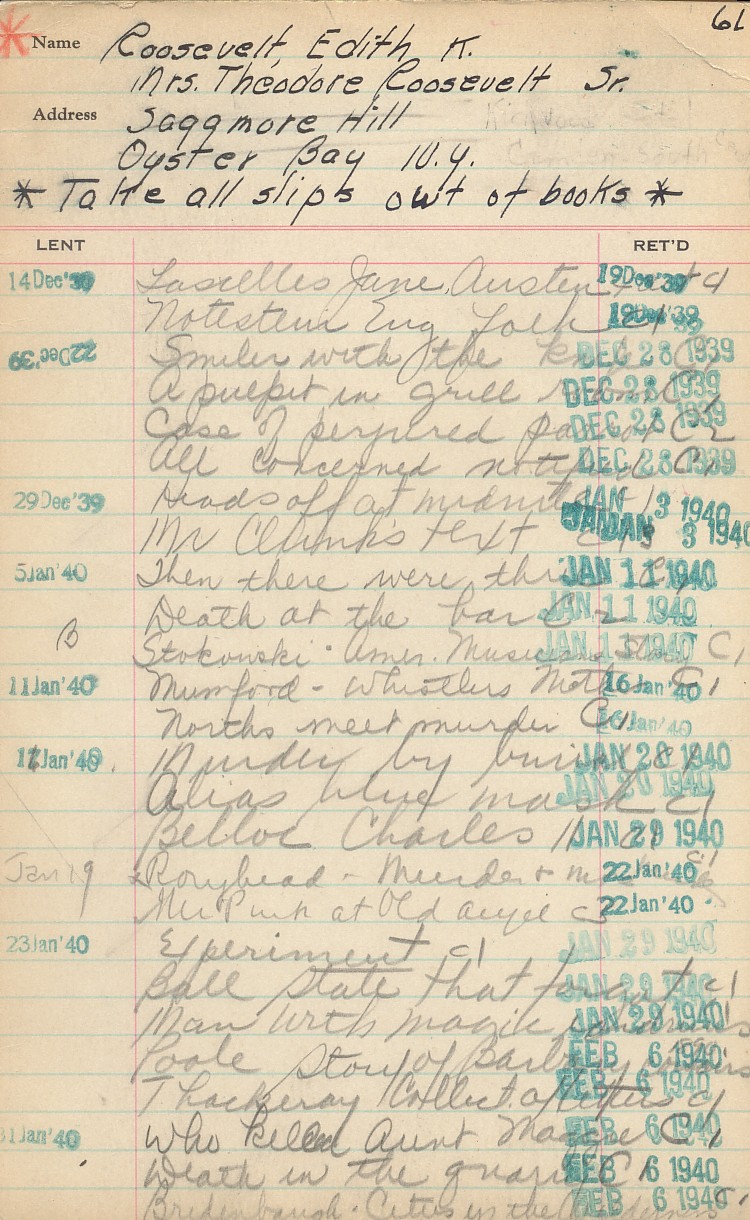 6L
Name Roosevelt, Edith K.
Mrs. Theodore Roosevelt Sr.
Address Sagamore Hill
Oyster Bay N.Y.
* Take all slips out of books *
LENT RET'D
14 Dec '39 Lascelles Jane Austen 19 Dec '39 c1
Notestein Eng Folk c1 19 Dec '39
22 Dec '39 Smiler with the knife DEC 28 1939 C1
A pulpit in grill room DEC 28 1939 C1
Case of perjured parrot DEC 28 1939 C2
All concerned notified DEC 28 1939 C1
29 Dec '39 Heads off at midnite JAN 3 1940
Mr Clunk's text c1 JAN 3 1940
5 Jan '40 Then there were three JAN 11 1940
Death at the bar C2 JAN 11 1940
B Stokowski - Amer. Musicians JAN 11 1940 C1
11 Jan '40 Mumford - Whistlers Mother 16 Jan '40 C1
Norths meet murder C1 16 Jan '40
17 Jan '40 Murder by JAN 28 1940
Alias blue mask JAN 20 1940 c1
Belloc Charles II c1 JAN 29 1940
Jan 19 - Murder + 22 Jan '40 c1
Mr Punk at Old Angel c3 22 Jan '40
23 Jan '40 Experiment c1 JAN 29 1940
Ball State that forgot JAN 29 1940 c1
Man with magic JAN 29 1940
Poole Story of Barbary FEB 6 1940
Thackeray Collect. of letters c1 FEB 6 1940
31 Jan '40 Who killed Aunt Maggie FEB 6 1940 C1
Death in the quarry C1 FEB 6 1940
Bridenbaugh - Cities in the Wilderness FEB 6 1940 C1